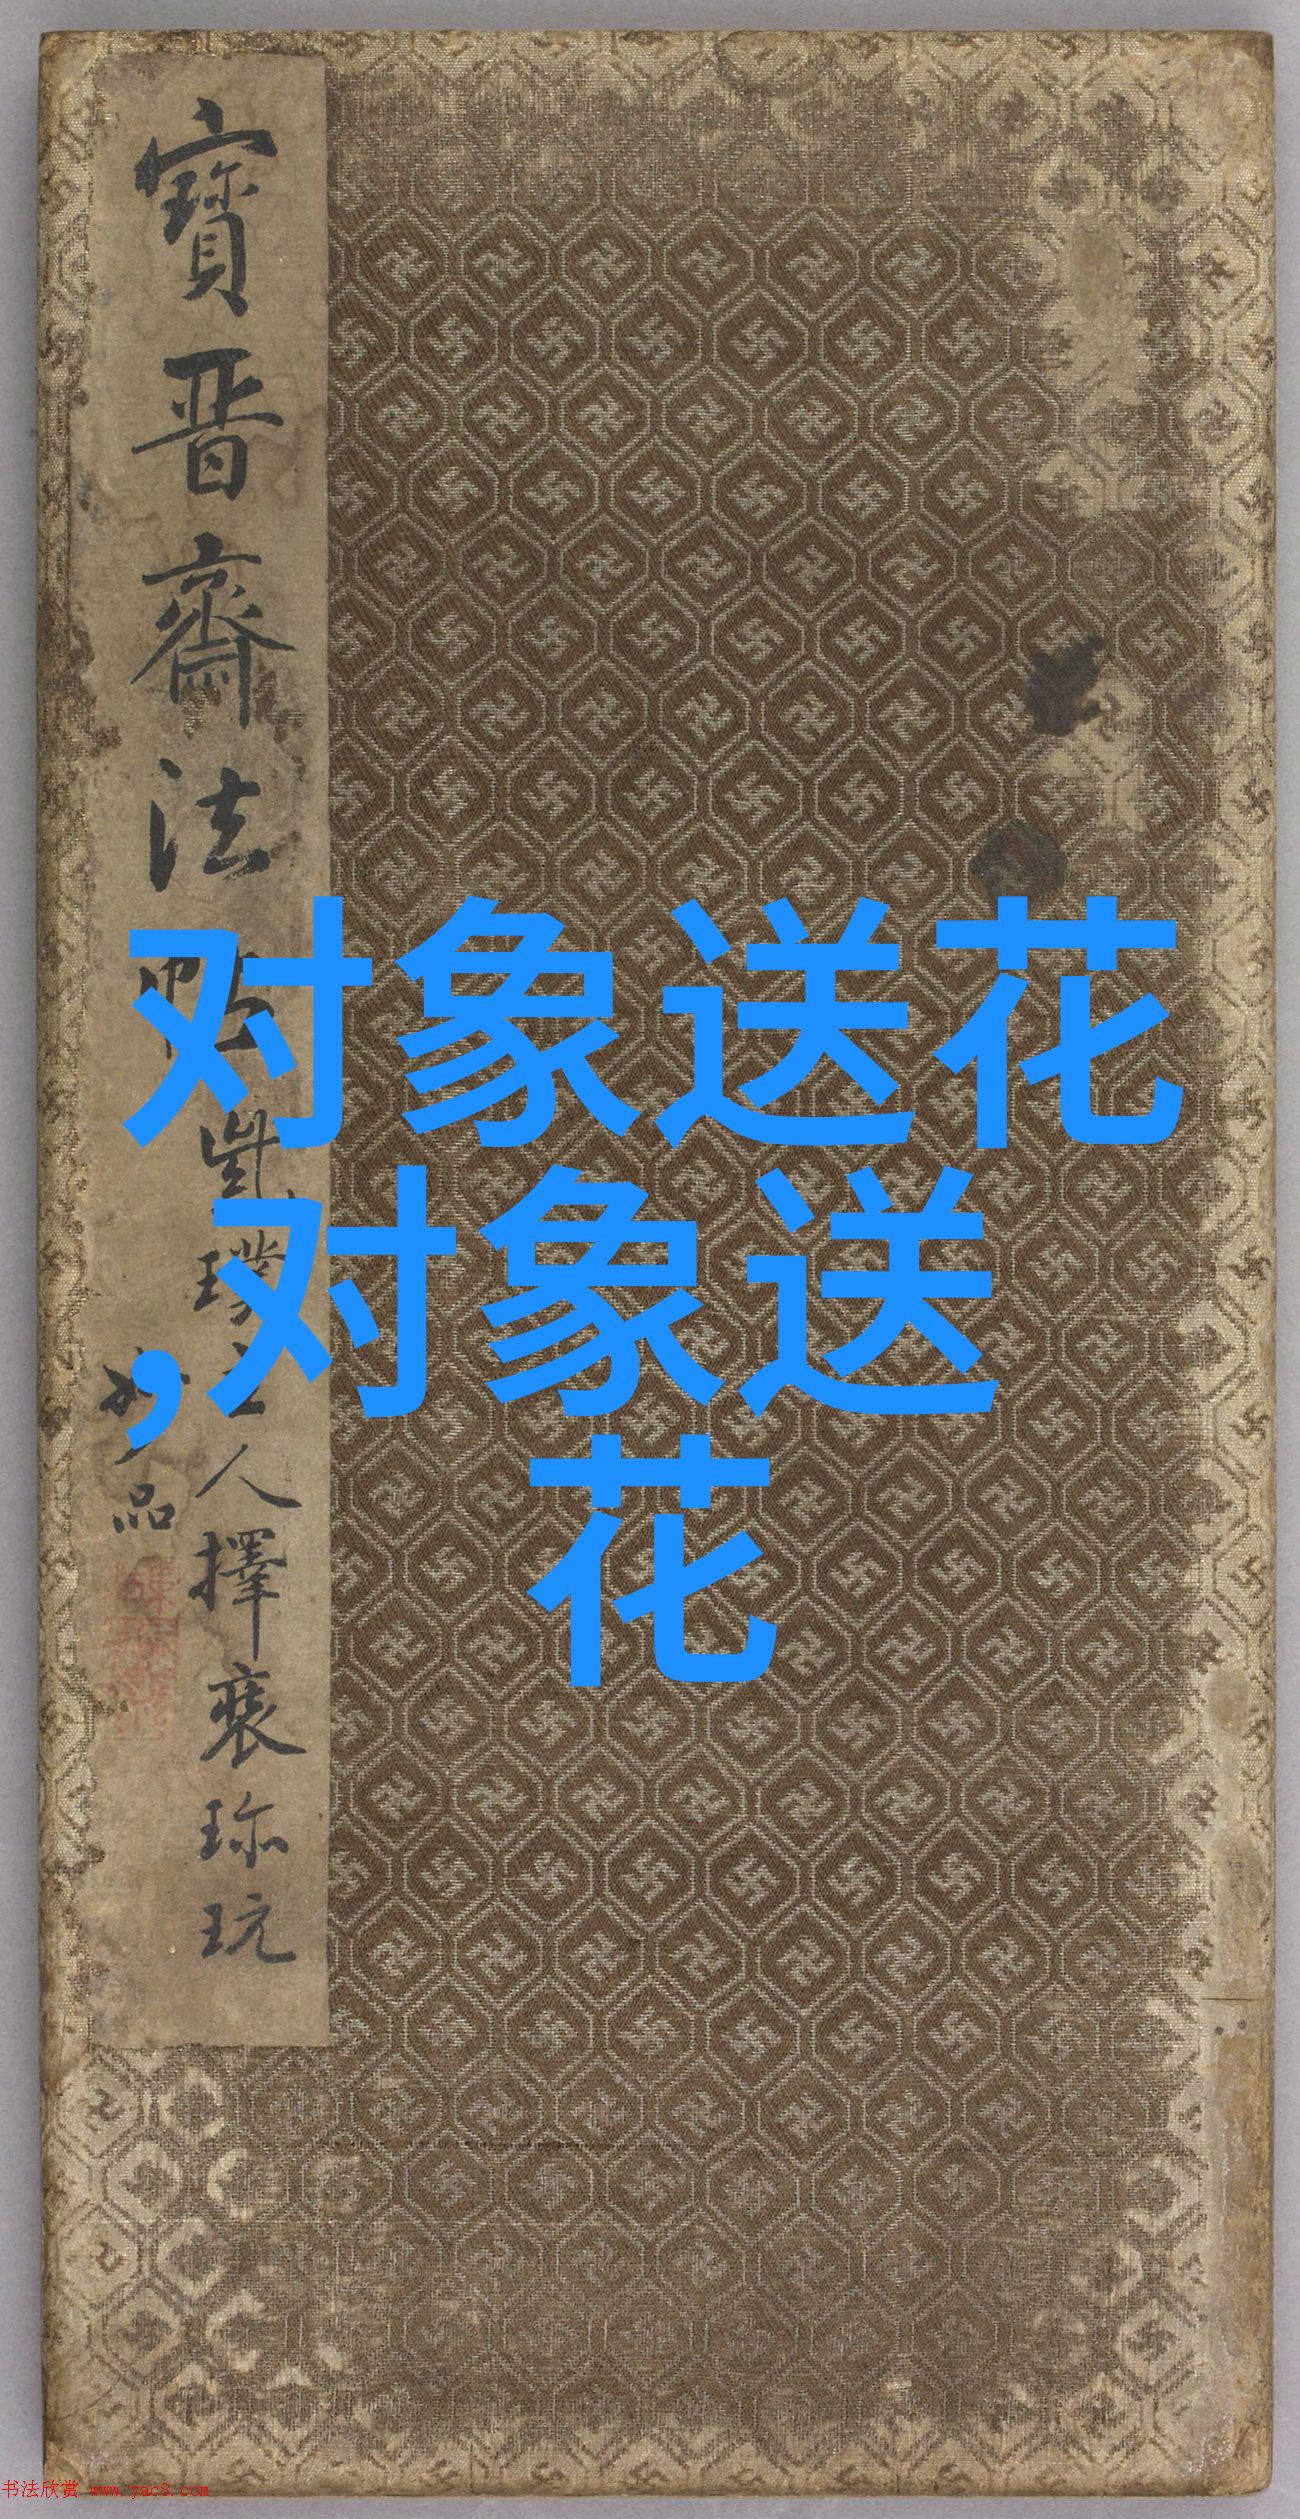 寳晋齋法帖
甞璞主人擇裘珎玩
妙品
对象送花
,对象送
花
书法欣赏 www.yac8.com